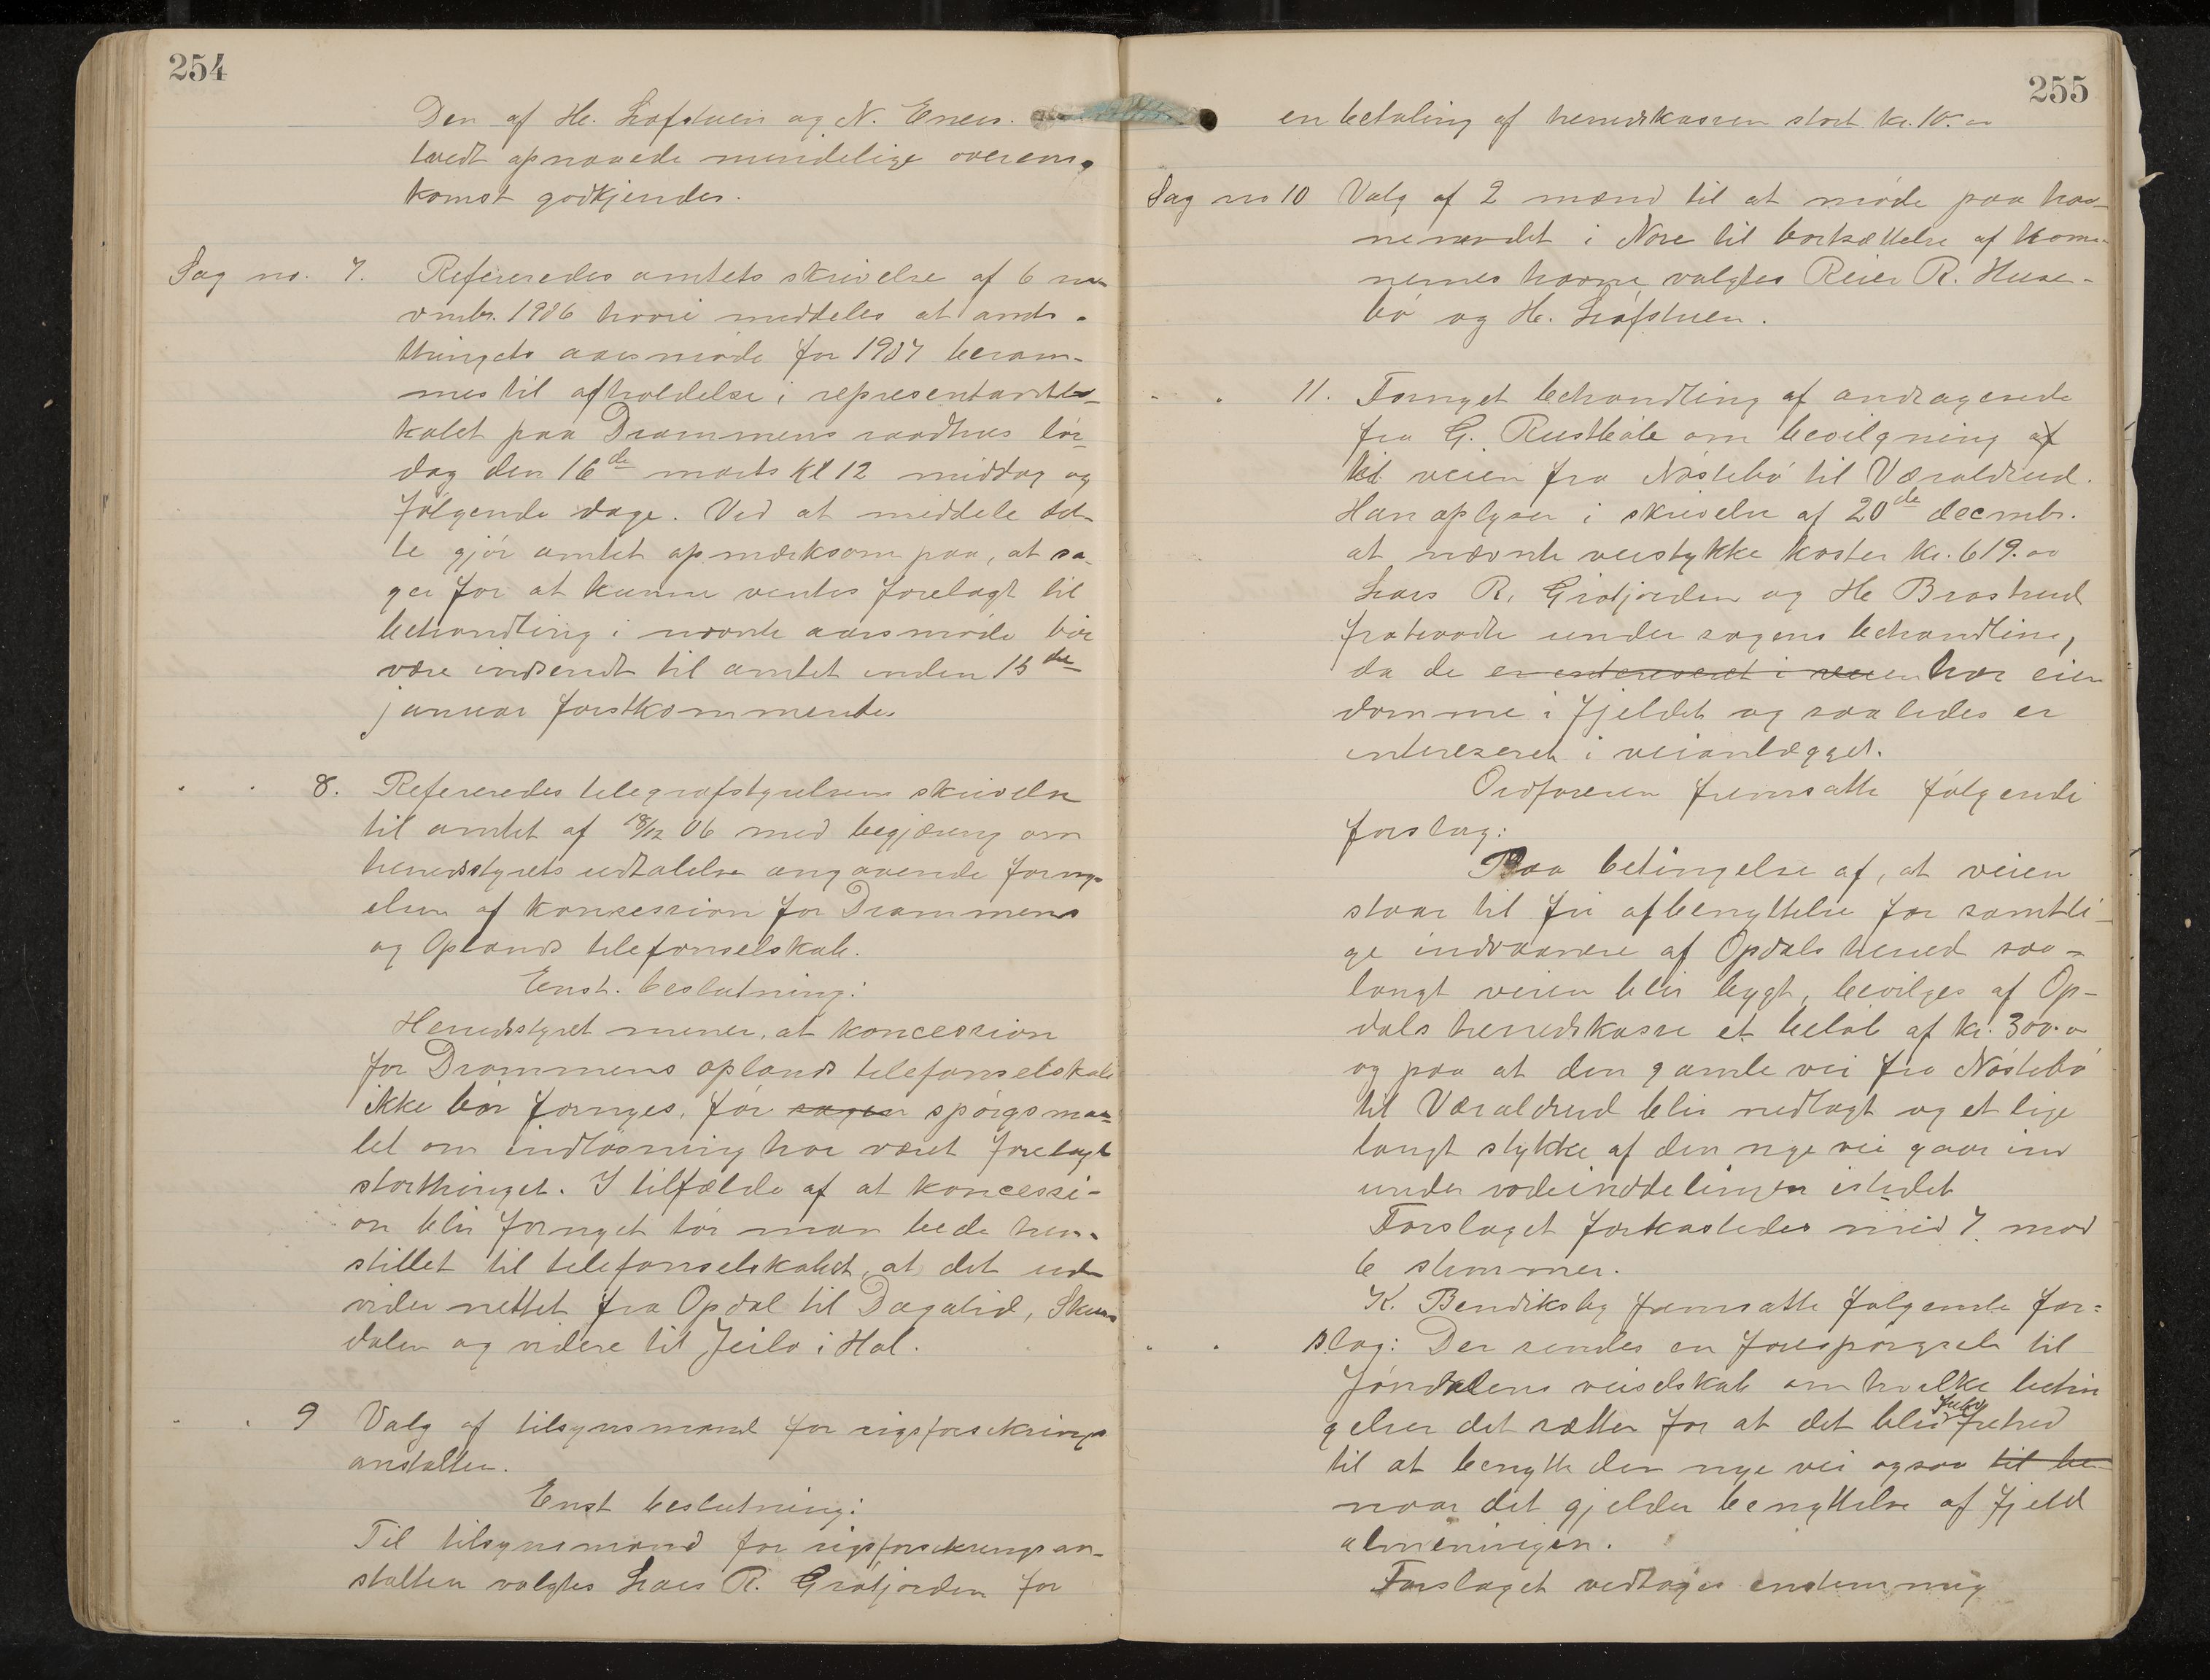 254
Den af H. Løfstuen og N. Eners-
tvedt opnaaede mindelige overens-
komst godkjendes.
Sag no. 7. Refereredes amtets skrivelse af 6 no-
vmbr. 1906 hvori meddeles at amts-
thingets aarsmøde for 1907 beram-
mes til afholdelse i representantlo-
kalet paa Drammens raadhus lør-
dag den 16de marts kl 12 middag og
følgende dage. Ved at meddele det-
te gjør amtet opmerksom paa, at sa-
ger for at kunne ventes forelagt til
behandling i nævnte aarsmøde bør
være indsendt til amtet inden 15de
januar førstkommende.
" " 8. Refereredes telegrafstyrelsens skrivelse
til amtet af 18/12 06 med begjæring om
herredsstyrets udtalelse angaaende forny-
elsen af konsession for Drammens
og Oplands telefonselskab.
Enst. beslutning:
Herredsstyret mener, at koncession
for Drammens oplands telefonselskab
ikke bør fornyes, før sagen spørgsmaa-
let om indløsning har været forelagt
storthinget. I tilfælde af at koncessi-
on blir fornyet tør man bede hen-
stillet til telefonselskabet, at det ud-
vider nettet fra Opdal til Dagalid, Skur-
dalen og videre til Jeilo i Hol.
" " 9 Valg af tilsynsmand for rigsforsikrings
anstalten.
Enst beslutning:
Til tilsynsmand for rigsforsikringsan-
stalten valgtes Lars R. Grøtjorden for
255
en betaling af herredskassen stort kr. 10.00
Sag no 10 Valg af 2 mænd til at møde paa hav-
nemødet i Nore til bortsættelse af
havne valgtes Reier R. Huse-
bø og H. Løfstuen.
" " 11. Fornyet behandling af andragende
fra G. Rustbøle om bevilgning af
til veien fra Nøstebø til Væraldrud.
Han oplyser i skrivelse af 20de decmbr.
at nævnte veistykke koster kr. 619.00
Lars R. Grøtjorden og H Brøstrud
fratraadte under sagens behandling,
da de er interesseret i veien har eien
domme i fjeldet og saaledes er
intereseret i veianlægget.
Ordføreren fremsatte følgende
forslag:
Paa betingelse af, at veien
staar til fri afbenyttelse for samtli-
ge indvaanere af Opdals herred saa-
langt veien blir bygt, bevilges af Op-
dals herredskasse et beløb af kr. 300.00
og paa at den gamle vei fra Nøstebø
til Væraldrud blir nedlagt og et lige
langt stykke af den nye vei gaar ind
under rodeinddelingen istedet
Forslaget forkastedes med 7 mod
6 stemmer.
K. Bendiksby fremsatte følgende for-
" " slag: Der sendes en forespørgsel til
Jøndalens veiselskab om hvilke betin
gelser det sætter for at det blir frihed
til at benytte den nye vei ogsaa til be-
naar det gjelder benyttelse af fjeld
almeningen.
Forslaget vedtoges enstemmig